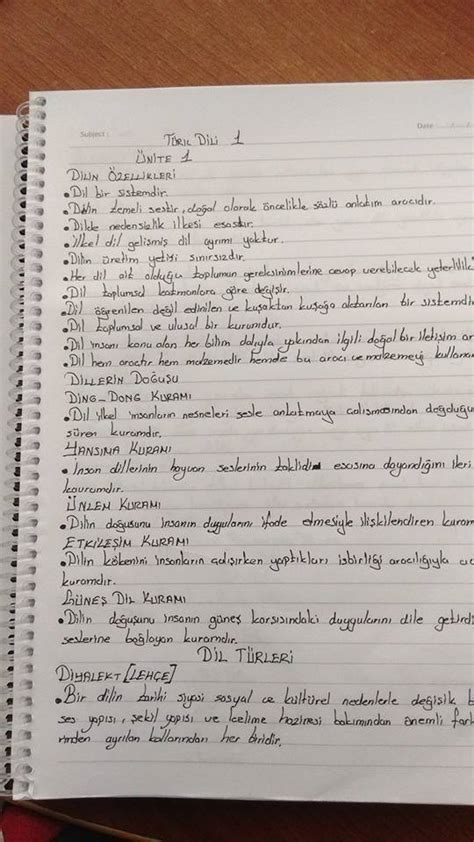 Subject:
Date
TÜRK DİLİ 1
ÜNİTE 1
DİLİN ÖZELLİKLERİ
• Dil bir sistemdir.
• Dilin temeli sestir, doğal olarak öncelikle sözlü anlatım aracıdır.
• Dilde nedensizlik ilkesi esastır.
• İlkel dil gelişmiş dil ayrımı yoktur.
• Dilin üretim yetisi sınırsızdır.
• Her dil ait olduğu toplumun gereksinimlerine cevap verebilecek yeterlilik
• Dil toplumsal katmanlara göre değişir.
• Dil öğrenilen değil edinilen ve kuşaktan kuşağa aktarılan bir sistemdi
• Dil toplumsal ve ulusal bir kurumdur.
• Dil insanı konu alan her bilim dalıyla yakından ilgili doğal bir iletişim ar
• Dil hem araçtır hem malzemedir hemde bu aracı ve malzemeyi kullanan
DİLLERİN DOĞUŞU
DİNG-DONG KURAMI
• Dil ilkel insanların nesneleri sesle anlatmaya çalışmasından doğduğu
süren kuramdır.
YANSIMA KURAMI
• İnsan dillerinin hayvan seslerinin taklidi esasına dayandığını ileri
kuramdır.
ÜNLEM KURAMI
• Dilin doğuşunu insanın duygularını ifade etmesiyle ilişkilendiren kuram
ETKİLEŞİM KURAMI
• Dilin kökenini insanların çalışırken yaptıkları işbirliği aracılığıyla
kuramdır.
GÜNEŞ DİL KURAMI
• Dilin doğuşunu insanın güneş karşısındaki duygularını dile getird
seslerine bağlayan kuramdır.
DİL TÜRLERİ
DİYALEKT [LEHÇE]
• Bir dilin tarihi siyasi sosyal ve kültürel nedenlerle değişik b
ses yapısı, şekil yapısı ve kelime hazinesi bakımından önemli fark
rından ayrılan kollarından her biridir.